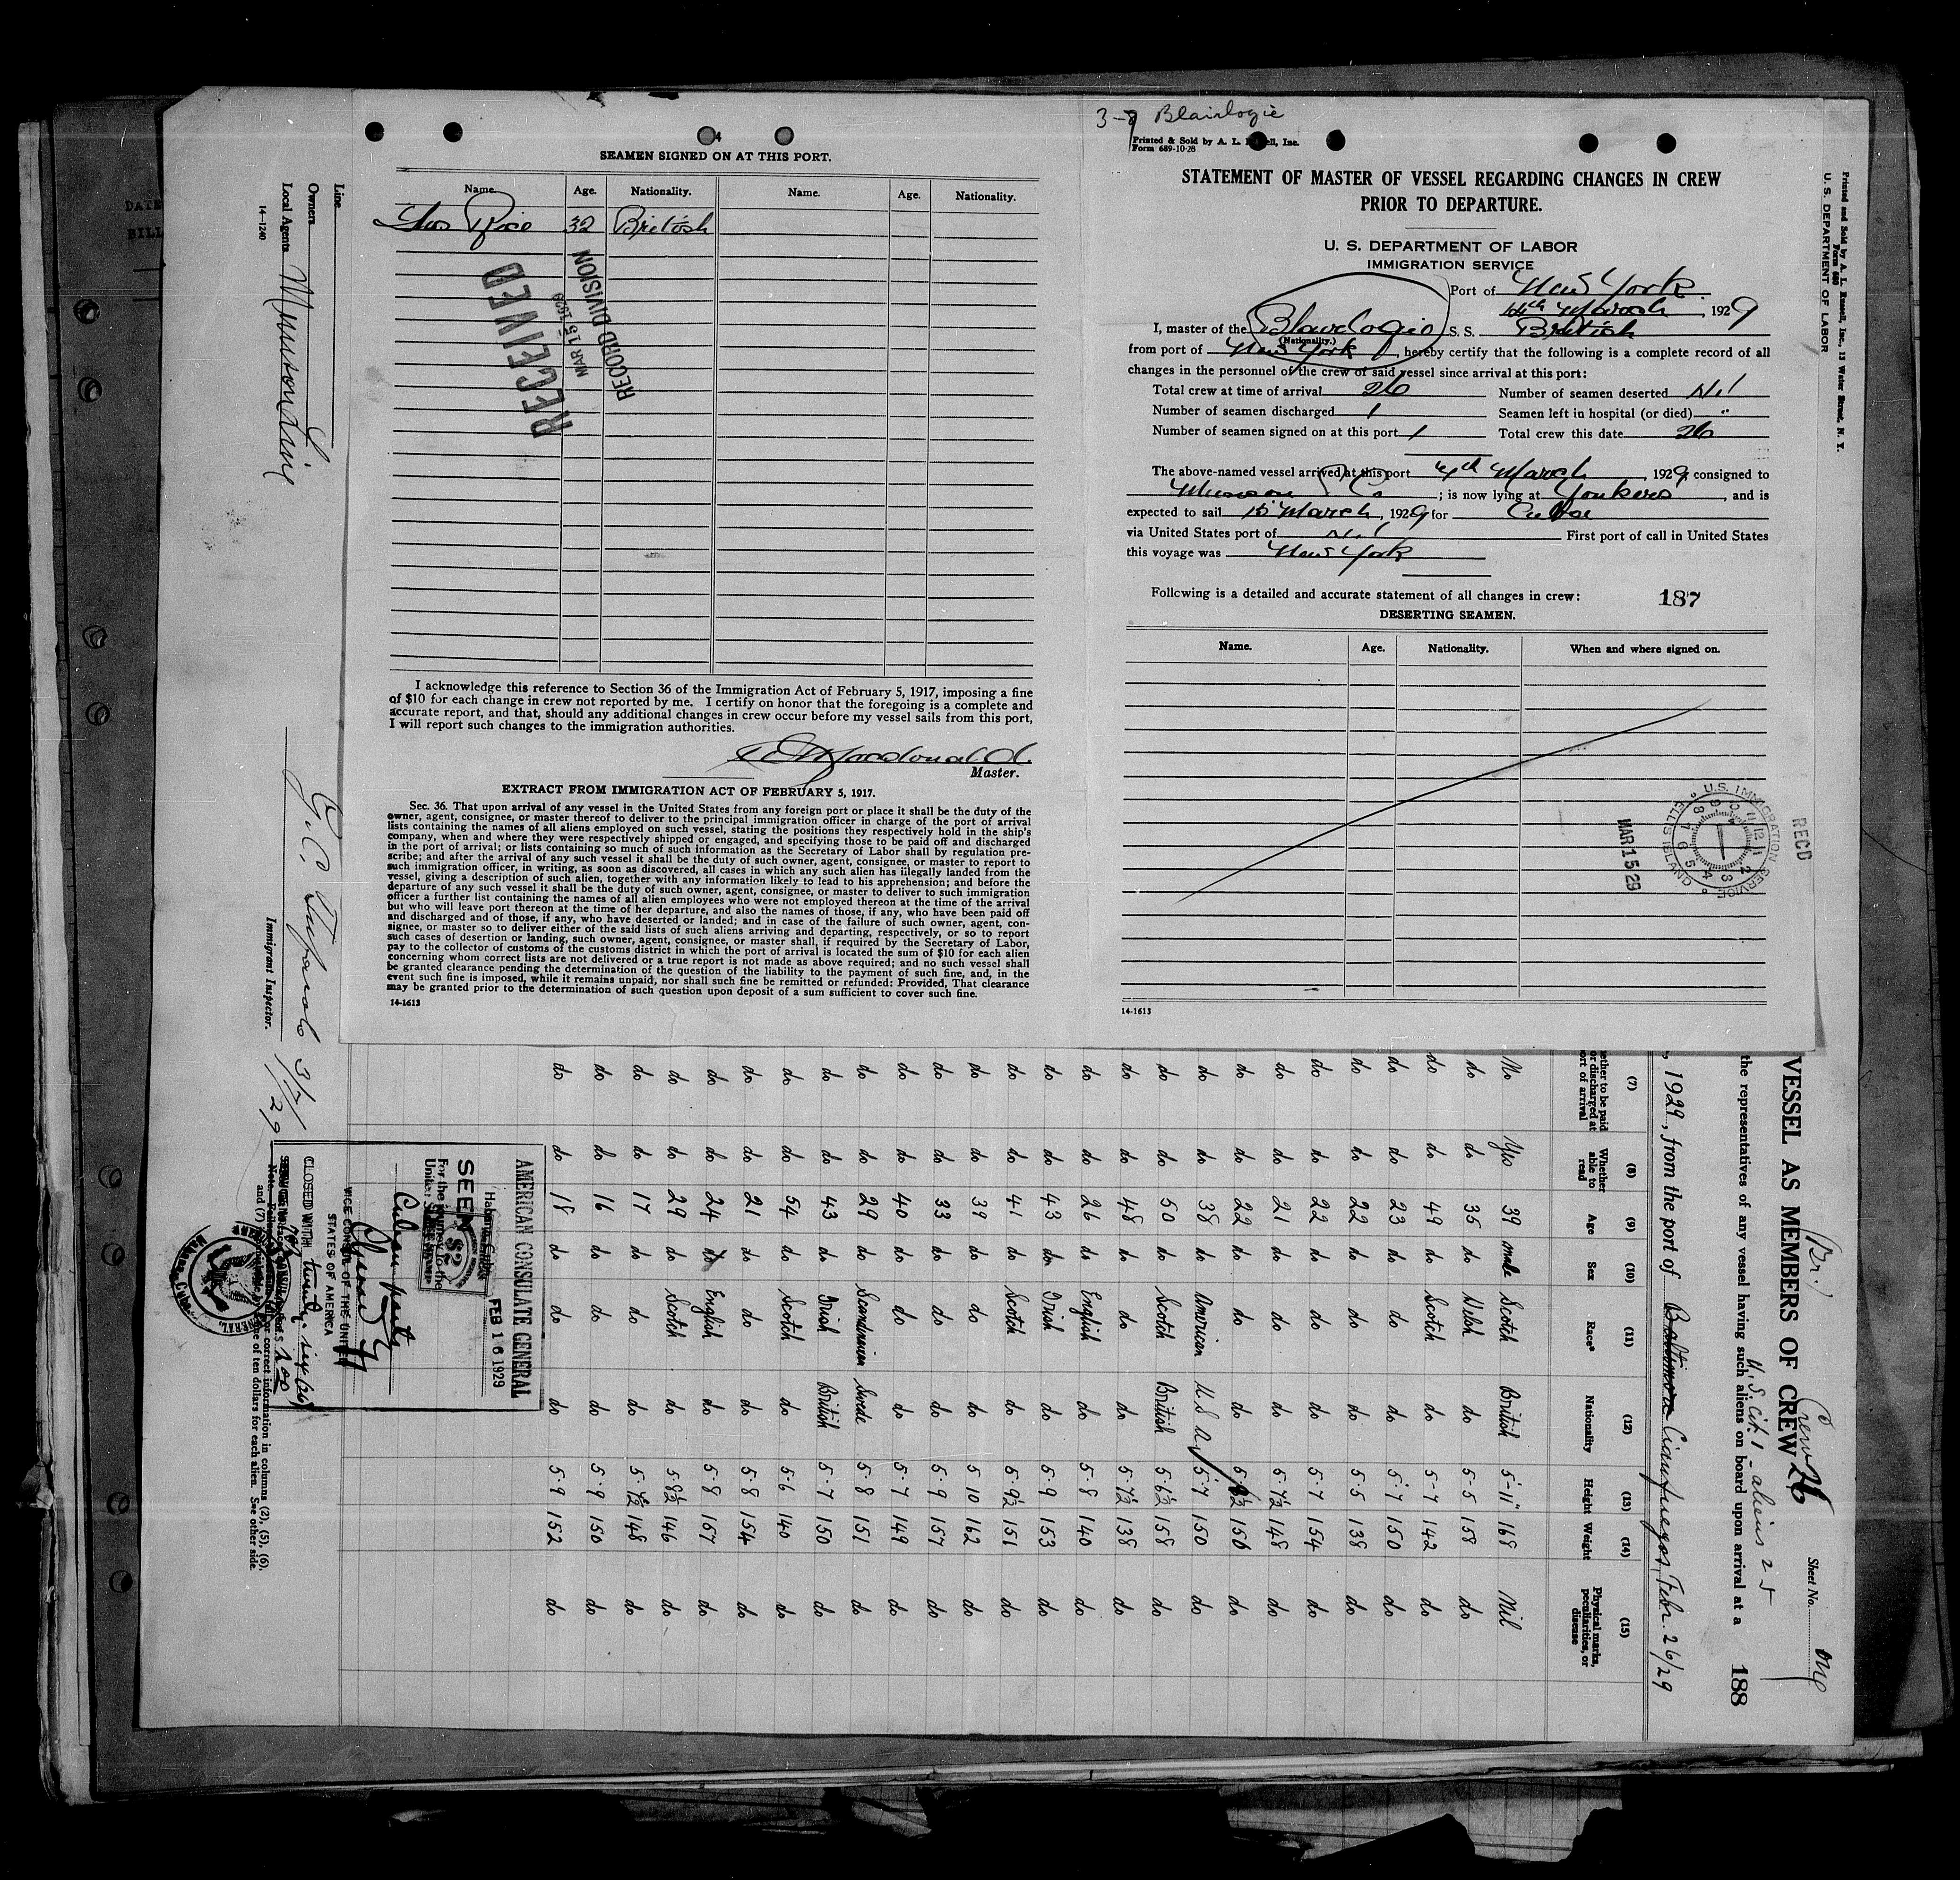 3-7 Blairlogie
Printed & Sold by A. L. Russell, Inc.
Form 689-10-28
STATEMENT OF MASTER OF VESSEL REGARDING CHANGES IN CREW
PRIOR TO DEPARTURE.
U. S. DEPARTMENT OF LABOR
IMMIGRATION SERVICE
Port of New York
14th March, 1929
I, master of the Blairlogie S. S. British
(Nationality.)
from port of New York, hereby certify that the following is a complete record of all
changes in the personnel of the crew of said vessel since arrival at this port:
Total crew at time of arrival 26 Number of seamen deserted Nil
Number of seamen discharged 1 Seamen left in hospital (or died) "
Number of seamen signed on at this port 1 Total crew this date 26
The above-named vessel arrived at this port 4th March, 1929, consigned to
Munson & Co; is now lying at Yonkers, and is
expected to sail 15 March, 1929 for Cuba
via United States port of Nil First port of call in United States
this voyage was New York
Following is a detailed and accurate statement of all changes in crew: 187
DESERTING SEAMEN.
Name. Age. Nationality. When and where signed on.
RECD
MAR 15 29
U.S. IMMIGRATION SERVICE
ELLIS ISLAND
14-1613
4
SEAMEN SIGNED ON AT THIS PORT.
Name. Age. Nationality. Name. Age. Nationality.
Thos Rice 32 British
RECEIVED
MAR 15 1929
RECORD DIVISION
I acknowledge this reference to Section 36 of the Immigration Act of February 5, 1917, imposing a fine
of $10 for each change in crew not reported by me. I certify on honor that the foregoing is a complete and
accurate report, and that, should any additional changes in crew occur before my vessel sails from this port,
I will report such changes to the immigration authorities.
Macdonald
Master.
EXTRACT FROM IMMIGRATION ACT OF FEBRUARY 5, 1917.
Sec. 36. That upon arrival of any vessel in the United States from any foreign port or place it shall be the duty of the
owner, agent, consignee, or master thereof to deliver to the principal immigration officer in charge of the port of arrival
lists containing the names of all aliens employed on such vessel, stating the positions they respectively hold in the ship's
company, when and where they were respectively shipped or engaged, and specifying those to be paid off and discharged
in the port of arrival; or lists containing so much of such information as the Secretary of Labor shall by regulation pre-
scribe; and after the arrival of any such vessel it shall be the duty of such owner, agent, consignee, or master to report to
such immigration officer, in writing, as soon as discovered, all cases in which any such alien has illegally landed from the
vessel, giving a description of such alien, together with any information likely to lead to his apprehension; and before the
departure of any such vessel it shall be the duty of such owner, agent, consignee, or master to deliver to such immigration
officer a further list containing the names of all alien employees who were not employed thereon at the time of the arrival
but who will leave port thereon at the time of her departure, and also the names of those, if any, who have been paid off
and discharged and of those, if any, who have deserted or landed; and in case of the failure of such owner, agent, con-
signee, or master so to deliver either of the said lists of such aliens arriving and departing, respectively, or so to report
such cases of desertion or landing, such owner, agent, consignee, or master shall, if required by the Secretary of Labor,
pay to the collector of customs of the customs district in which the port of arrival is located the sum of $10 for each alien
concerning whom correct lists are not delivered or a true report is not made as above required; and no such vessel shall
be granted clearance pending the determination of the question of the liability to the payment of such fine, and, in the
event such fine is imposed, while it remains unpaid, nor shall such fine be remitted or refunded: Provided, That clearance
may be granted prior to the determination of such question upon deposit of a sum sufficient to cover such fine.
14-1613
Printed and Sold by A. L. Russell, Inc., 13 Water Street, N. Y.
Form 680
U. S. DEPARTMENT OF LABOR
Sheet No. One
(Br.) Crew 26
VESSEL AS MEMBERS OF CREW
U.S. cit. 1 - aliens 25
the representatives of any vessel having such aliens on board upon arrival at a 188
, 1929, from the port of Cienfuegos, Febr. 26/29
(7) (8) (9) (10) (11) (12) (13) (14) (15)
Whether to be paid or discharged at port of arrival Whether able to read Age Sex Race* Nationality Height Weight Physical marks, peculiarities, or disease
No Yes 39 male Scotch British 5-11" 168 Nil
do do 35 do Welsh do 5-5 158 do
do do 49 do Scotch do 5-7 142 do
do do 23 do do do 5-7 150 do
do do 22 do do do 5-5 138 do
do do 22 do do do 5-7 154 do
do do 21 do do do 5-7½ 148 do
do do 22 do do do 150 do
do do 38 do American U.S.A. 5-7 150 do
do do 50 do Scotch British 5-6½ 158 do
do do 48 do do do 5-7½ 138 do
do do 26 do English do 5-8 140 do
do do 43 do Irish do 5-9 153 do
do do 41 do Scotch do 5-9½ 151 do
do do 39 do do do 5-10 162 do
do do 33 do do do 5-9 157 do
do do 40 do do do 5-7 149 do
do do 29 do Scandinavian Swede 5-8 151 do
do do 43 do Irish British 5-7 150 do
do do 54 do Scotch do 5-6 140 do
do do 21 do do do 5-8 154 do
do do 24 do English do 5-8 157 do
do do 29 do Scotch do 5-8½ 146 do
do do 17 do do do 5-7½ 148 do
do do 16 do do do 5-9 150 do
do do 18 do do do 5-9 152 do
AMERICAN CONSULATE GENERAL
Habana, Cuba
FEB 16 1929
SEEN
For the journey to the
United States
$2
VICE CONSUL OF THE UNITED
STATES OF AMERICA
CLOSED WITH twenty-six (26)
and (7) of ten dollars for each alien. See other side.
or correct information in columns (2), (5), (6),
Line
Owners
Local Agents Munson Line
14-1240
3/7/29
Immigrant Inspector.
DATE
BILL